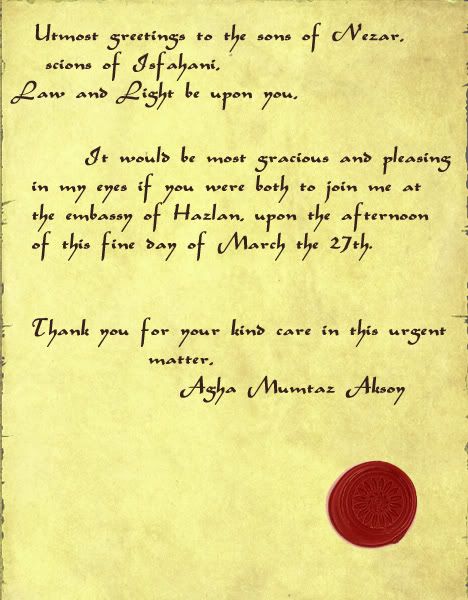 Utmost greetings to the sons of Nezar,
scions of Isfahani,
Law and Light be upon you,
It would be most gracious and pleasing
in my eyes if you were both to join me at
the embassy of Hazlan, upon the afternoon
of this fine day of March the 27th.
Thank you for your kind care in this urgent
matter,
Agha Mumtaz Aksoy